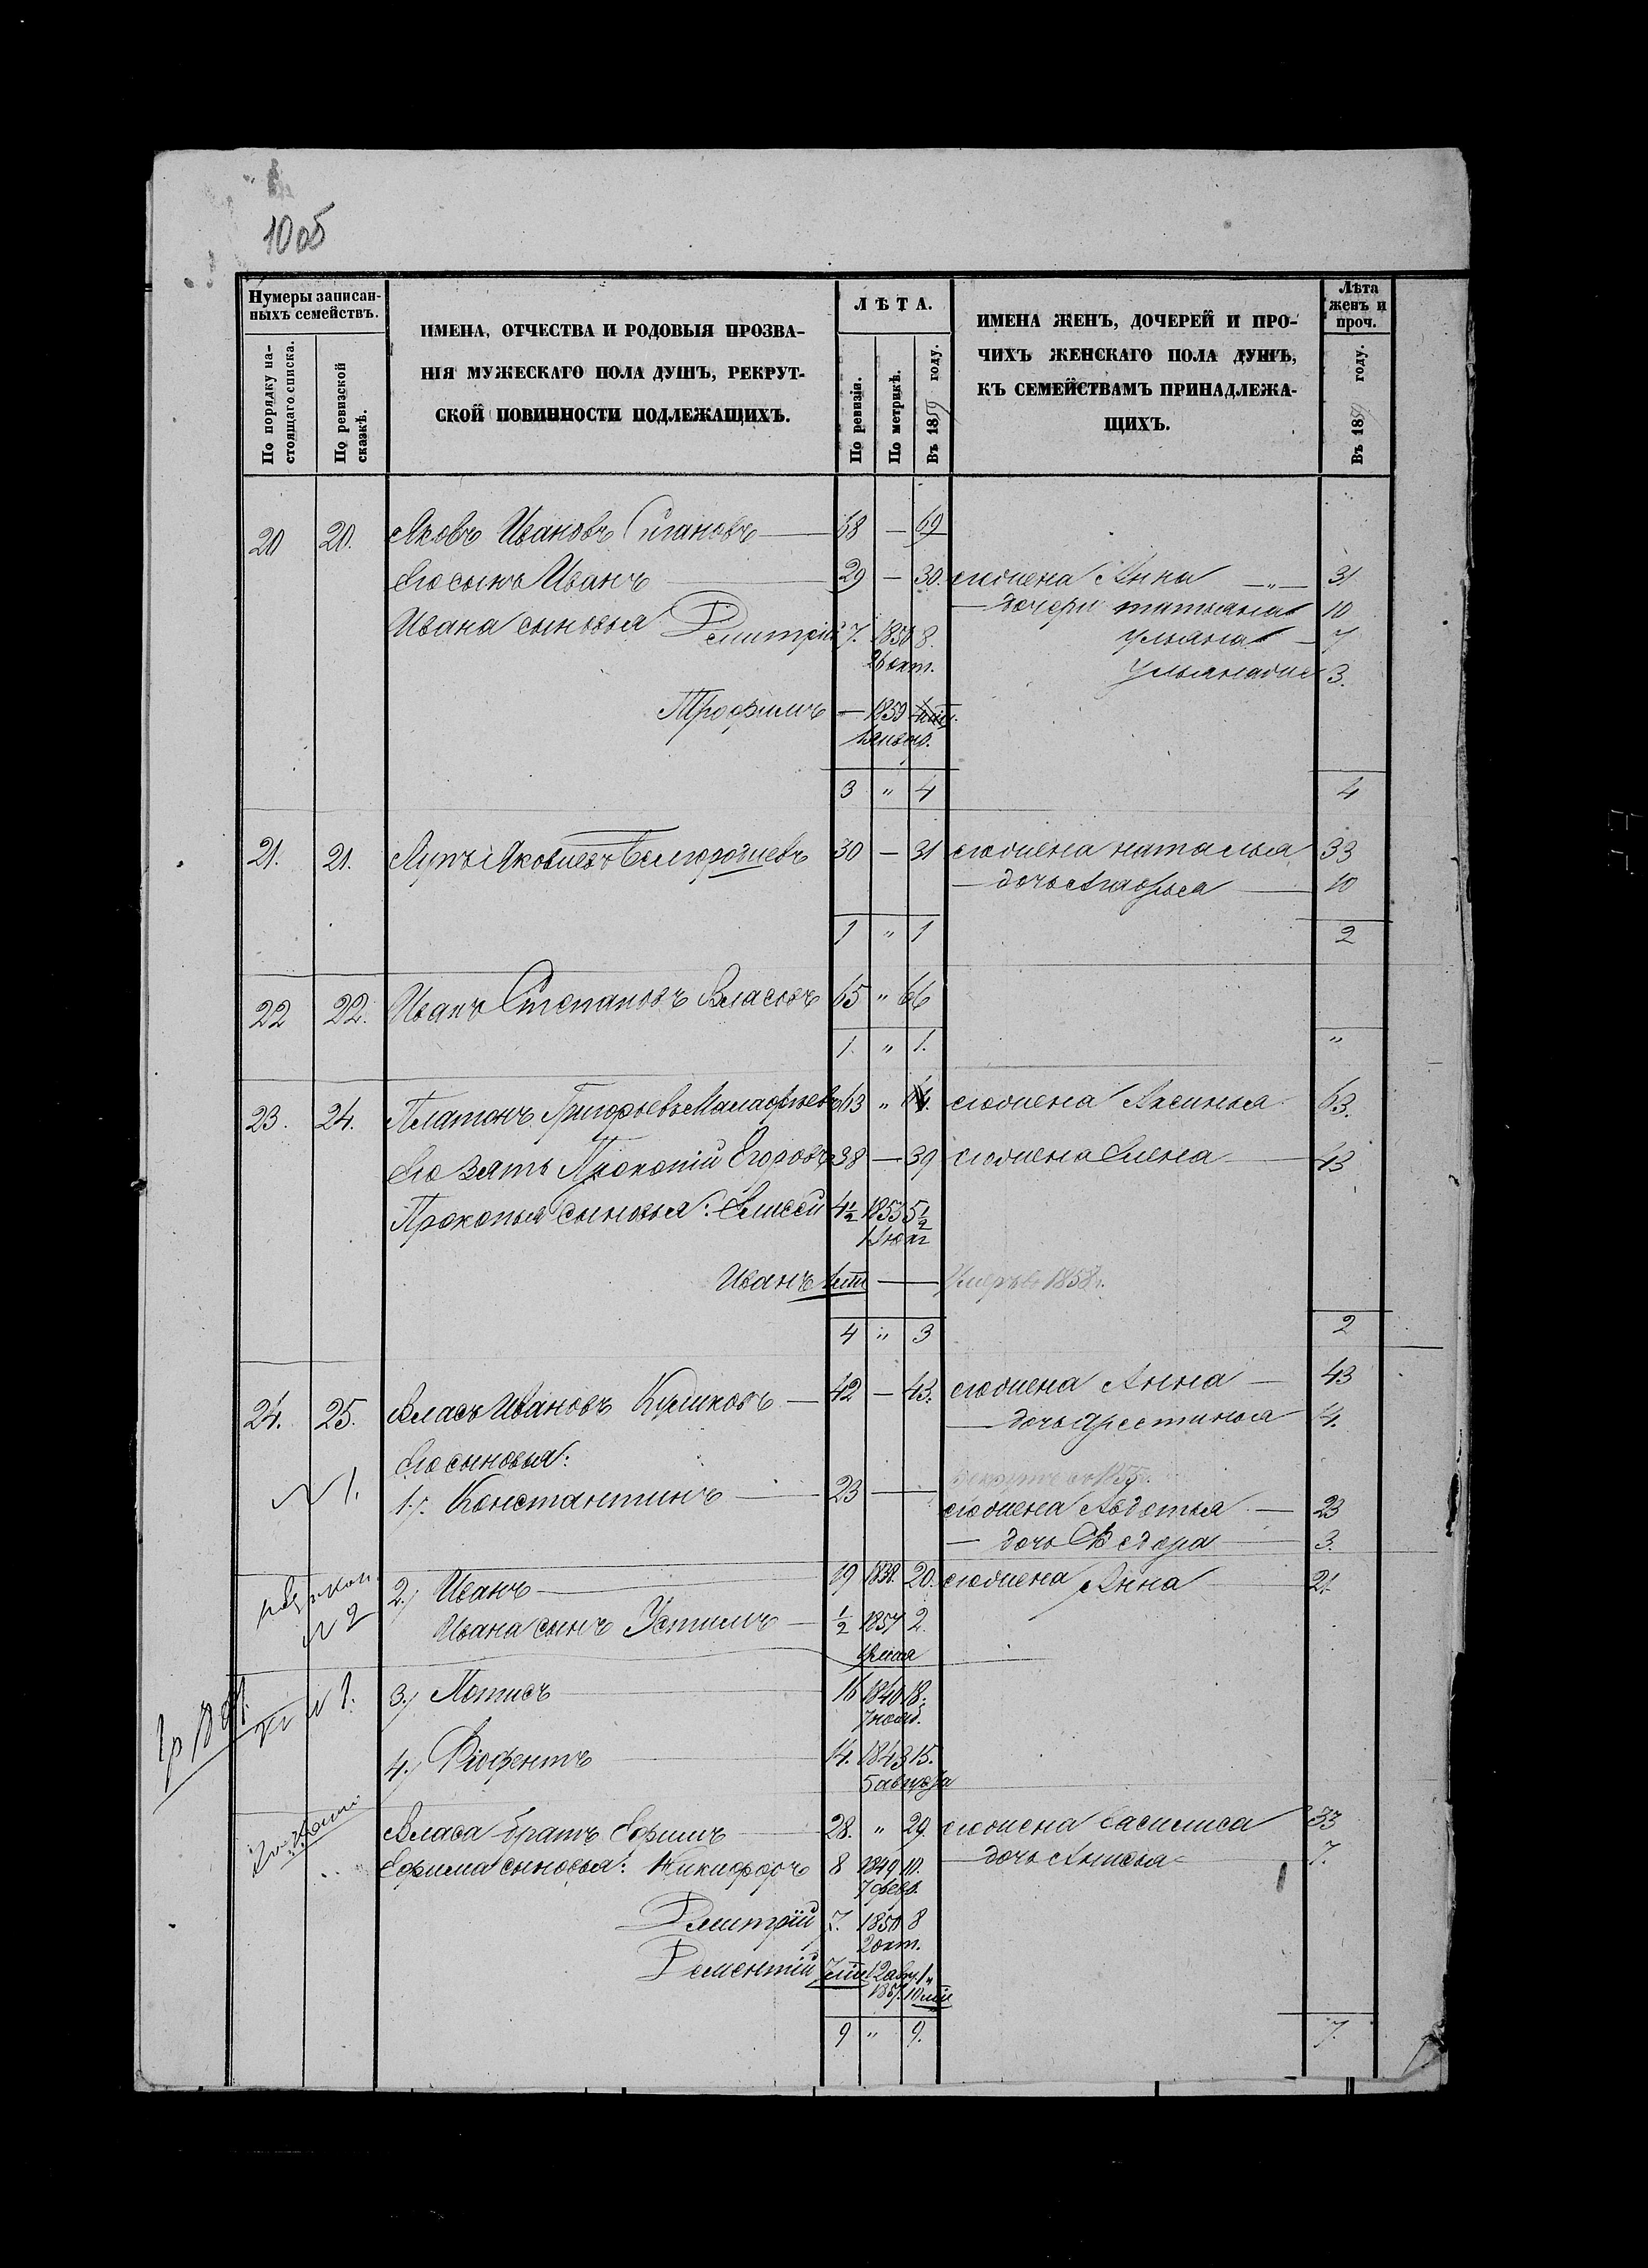 10 об
Нумеры записан-
ныхъ семействъ.
По порядку на-
стоящаго списка.
По ревизской
сказкѣ.
ИМЕНА, ОТЧЕСТВА И РОДОВЫЯ ПРОЗВА-
НІЯ МУЖЕСКАГО ПОЛА ДУШЪ, РЕКРУТ-
СКОЙ ПОВИННОСТИ ПОДЛЕЖАЩИХЪ.
ЛѢТА.
По ревизіи.
По метрикѣ.
Въ 1859 году.
ИМЕНА ЖЕНЪ, ДОЧЕРЕЙ И ПРО-
ЧИХЪ ЖЕНСКАГО ПОЛА ДУШЪ,
КЪ СЕМЕЙСТВАМЪ ПРИНАДЛЕЖА-
ЩИХЪ.
Лѣта
женъ и
проч.
Въ 1859 году.
20 20. Яковъ Ивановъ 68 — 69
Его сынъ Иванъ 29 — 30. его жена Анна — „ — 31
Ивана сыновья Дмитрій 7. 1850 8. — дочери Татьяна 10
26 окт. Ульяна — 7
3.
Трофимъ — 1859
3 „ 4 4
21. 21. Яковлевъ 30 — 31 его жена Наталья 33
— дочь 10
1 „ 1 2
22 22. Иванъ Степановъ Власовъ 65 „ 66
1. „ 1. „
23. 24. Платонъ Григорьевъ Малафѣевъ 63 „ 64. его жена Аксинья 63.
Его зять Прокопій Егоровъ 38 — 39 его жена Елена 43
Прокопья сыновья: Елисей 4½ 1853 5½
Иванъ — Умеръ въ 1858 г.
4 „ 3 2
24. 25. Власъ Ивановъ Куликовъ — 42 — 43. его жена Анна — 43
— дочь 14.
Его сыновья:
№ 1. 1.) Константинъ 23 —
его жена Авдотья — 23
— дочь Ѳедора 3.
2.) Иванъ 19 1838. 20. его жена Анна 21.
№ 2 Ивана сынъ Устинъ — ½ 1857 2.
№ 1. 3.) 16 1840 18.
7 нояб.
4.) Діофентъ 14. 1843 15.
5 августа
Власа братъ Ефимъ 28. „ 29. его жена Василиса 33
Ефима сыновья: Никифоръ 8 1849 10. — дочь Анисья 7.
7 февр.
Дмитрій 7. 1850 8
2 окт.
Дементій 12 авг.
1857.
9 „ 9. 7.